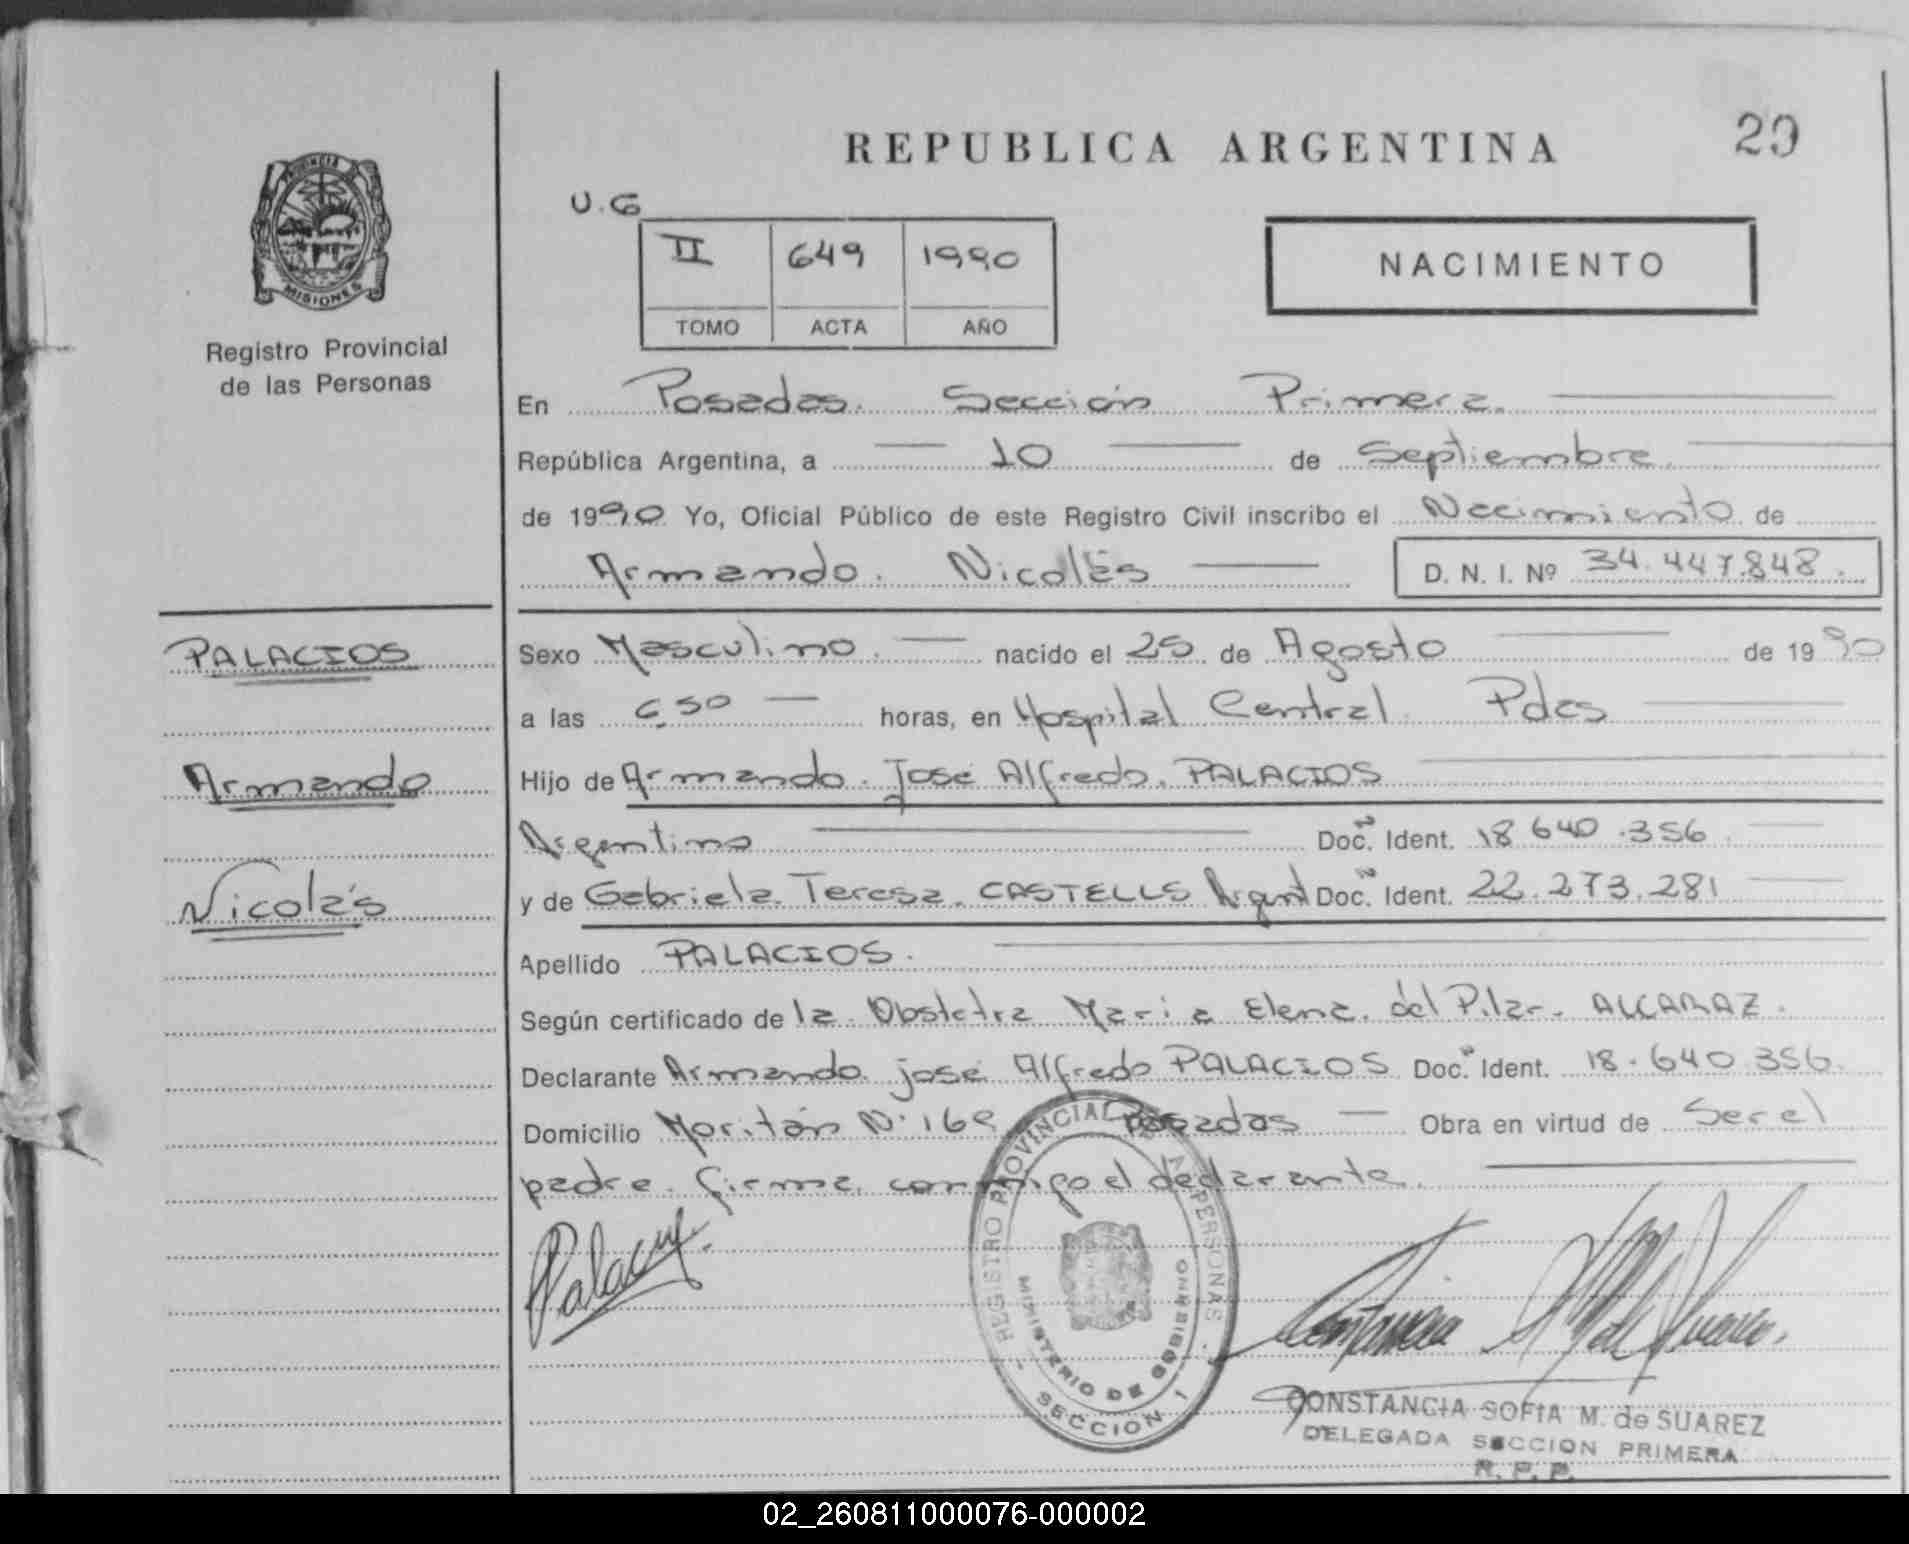 REPUBLICA ARGENTINA
29
PROVINCIA DE
MISIONES
Registro Provincial
de las Personas
U.G
II 649 1990
TOMO ACTA AÑO
NACIMIENTO
En Posadas. Sección Primera.
República Argentina, a 10 de Septiembre
de 1990 Yo, Oficial Público de este Registro Civil inscribo el Nacimiento de
Armando. Nicolás D. N. I. Nº 34.447.848.
PALACIOS
Armando
Nicolás
Sexo Masculino. nacido el 25 de Agosto de 1990
a las 6,50 horas, en Hospital Central Pdas
Hijo de Armando. José Alfredo. PALACIOS
Argentino Doc. Ident. 18 640.356.
y de Gabriela Teresa. CASTELLS Argent Doc. Ident. 22.273.281
Apellido PALACIOS.
Según certificado de la Obstetra Maria Elena. del Pilar. ALCARAZ.
Declarante Armando José Alfredo PALACIOS Doc. Ident. 18.640.356.
Domicilio Moritán Nº Posadas Obra en virtud de Ser el
padre. firma conmigo el declarante.
REGISTRO PROVINCIAL DE LAS PERSONAS
MINISTERIO DE GOBIERNO
SECCION 1
CONSTANCIA SOFIA M. de SUAREZ
DELEGADA SECCION PRIMERA
R. P. P.
02_260811000076-000002